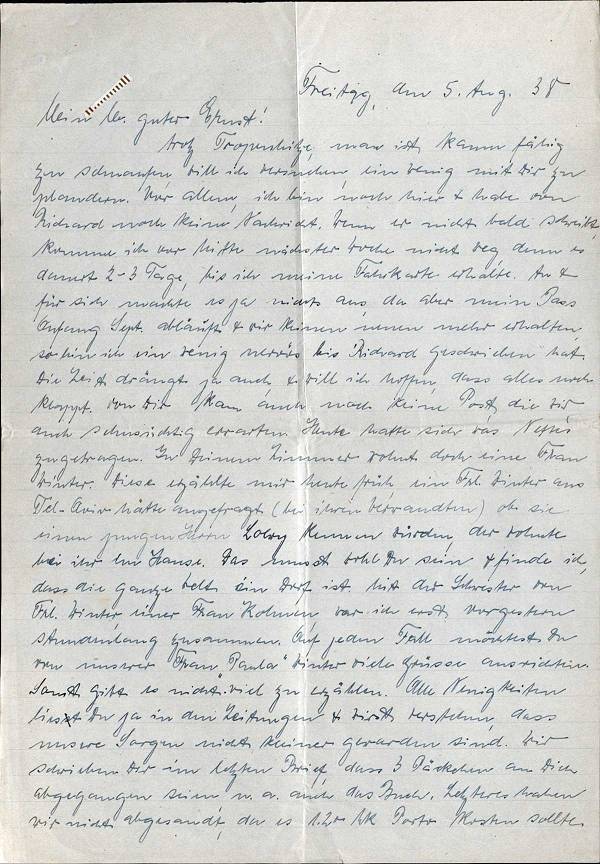 Freitag, den 5. Aug. 38
Mein lb. guter Ernst!
trotz Tropenhitze, man ist kaum fähig
zu schnaufen, will ich versuchen, ein wenig mit Dir zu
plaudern. Vor allem, ich bin noch hier & habe von
Richard noch keine Nachricht. Wenn er nicht bald schreibt,
komme ich vor Mitte nächster Woche nicht weg, denn es
dauert 2-3 Tage, bis ich meine Fahrkarte erhalte. An &
für sich machte es ja nichts aus, da aber mein Pass
Anfang Sept. abläuft & wir keinen neuen mehr erhalten
so bin ich ein wenig nervös bis Richard geschrieben hat.
Die Zeit drängt ja auch & will ich hoffen, dass alles noch
klappt. von Dir kam auch noch keine Post, die wir
auch sehnsüchtig erwarten. Heute hatte sich was Nettes
zugetragen. In Deinem Zimmer wohnt doch eine Frau
Winter. Diese erzählte mir heute früh, ein Frl. Winter aus
Tel-Aviv hätte angefragt (bei ihren Verwandten) ob sie
einen jungen Herrn Loewy kennen würden, der wohnte
bei ihr im Hause. Das musst wohl Du sein & finde ich,
dass die ganze Welt ein Dorf ist. Mit der Schwester von
Frl. Winter einer Frau war ich erst vorgestern
stundenlang zusammen. Auf jeden Fall möchtest Du
von unserer "Frau Paula" Winter viele Grüsse ausrichten.
Sonst gibt es nicht viel zu erzählen. Alle Neuigkeiten
liest Du ja in den Zeitungen & wirst verstehen, dass
unsere Sorgen nicht kleiner geworden sind. Wir
schrieben Dir im letzten Brief, dass 3 Päckchen an Dich
abgegangen seien u. a. auch das Buch. Letzteres haben
wir nicht abgesandt, da es 1.20 Mk Porto kosten sollte.